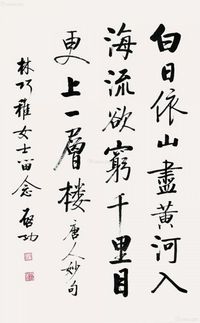 白日依山盡黃河入
海流欲窮千里目
更上一層樓 唐人妙句
林巧稚女士留念 啟功